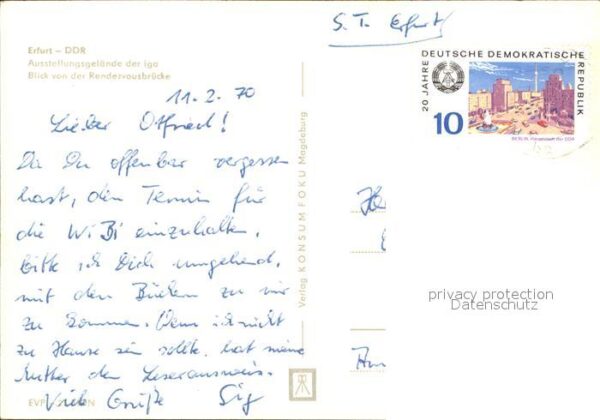 Erfurt – DDR
Ausstellungsgelände der iga
Blick von der Rendezvousbrücke
11.2.70
Lieber Otfried!
Da Du offenbar vergessen
hast, den Termin für
die WiBi einzuhalten,
bitte ich Dich umgehend,
mit den Büchern zu mir
zu kommen. Wenn ich nicht
zu Hause sein sollte, hat meine
Mutter den Leseausweis.
Viele Grüße Sig
EVP
Verlag KONSUM FOKU Magdeburg
S. T. Erfurt
20 JAHRE DEUTSCHE DEMOKRATISCHE REPUBLIK
10
BERLIN, Hauptstadt der DDR
privacy protection
Datenschutz